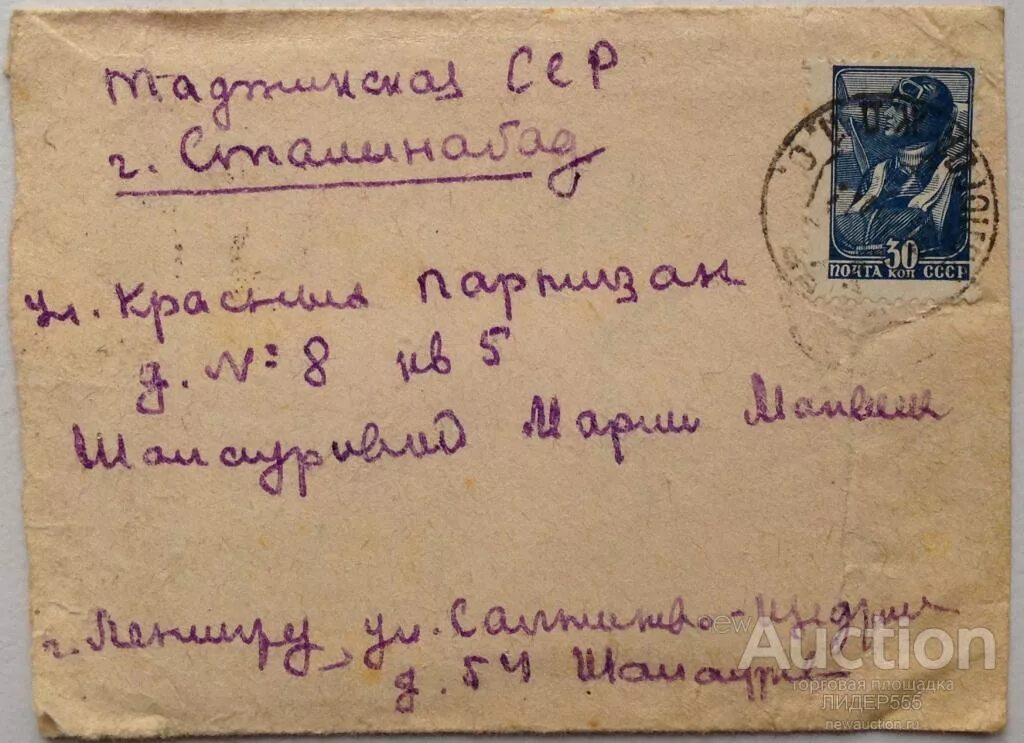 Таджикская ССР
г. Сталинабад
ПОЧТА 30 КОП СССР
ул. Красных партизан
д. № 8 кв 5
Марии
г. ул. Салтыкова-Щедрина
д. 54
newAuction
торговая площадка
ЛИДЕР555
newauction.ru